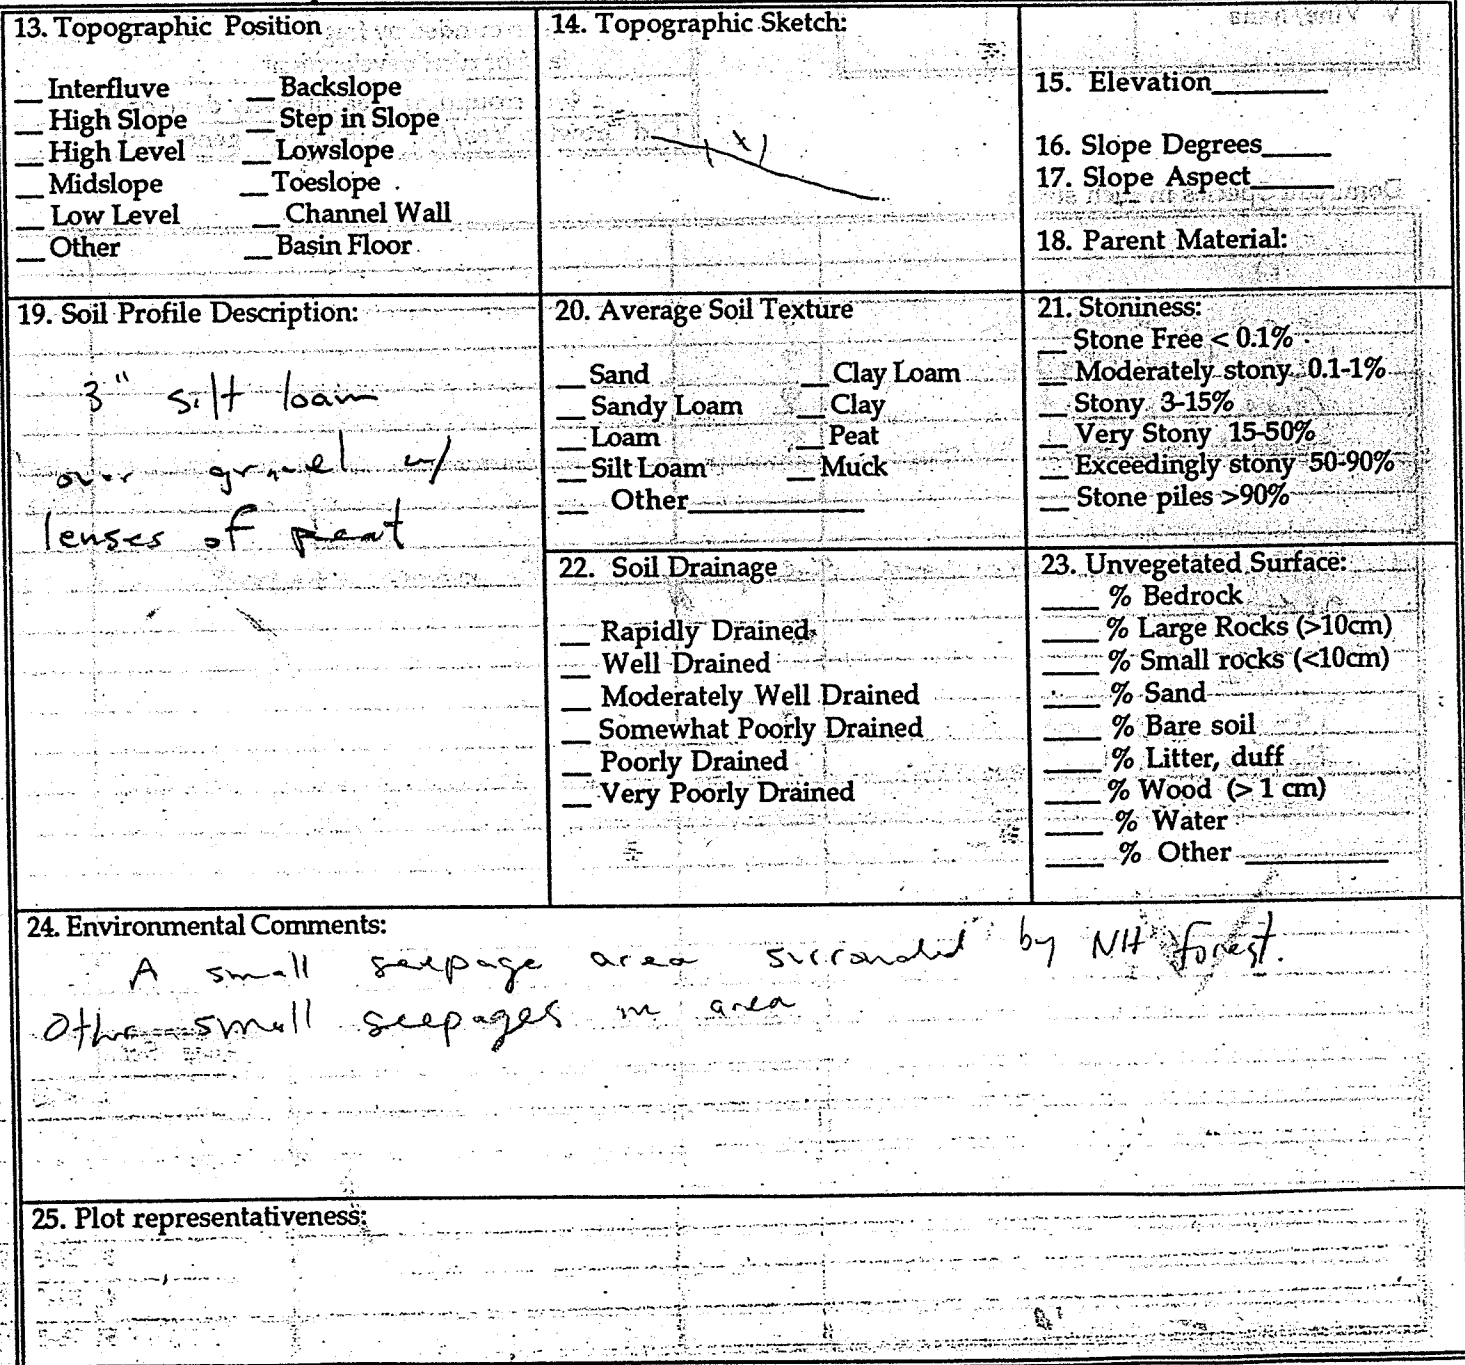 13. Topographic Position
__ Interfluve __ Backslope
__ High Slope __ Step in Slope
__ High Level __ Lowslope
__ Midslope __ Toeslope
__ Low Level __ Channel Wall
__ Other __ Basin Floor
14. Topographic Sketch:
x
15. Elevation________
16. Slope Degrees_____
17. Slope Aspect______
18. Parent Material:
19. Soil Profile Description:
3" silt loam
over gravel w/
lenses of peat
20. Average Soil Texture
__ Sand __ Clay Loam
__ Sandy Loam __ Clay
__ Loam __ Peat
__ Silt Loam __ Muck
__ Other____________
21. Stoniness:
__ Stone Free < 0.1%
__ Moderately stony 0.1-1%
__ Stony 3-15%
__ Very Stony 15-50%
__ Exceedingly stony 50-90%
__ Stone piles >90%
22. Soil Drainage
__ Rapidly Drained
__ Well Drained
__ Moderately Well Drained
__ Somewhat Poorly Drained
__ Poorly Drained
__ Very Poorly Drained
23. Unvegetated Surface:
____ % Bedrock
____ % Large Rocks (>10cm)
____ % Small rocks (<10cm)
____ % Sand
____ % Bare soil
____ % Litter, duff
____ % Wood (> 1 cm)
____ % Water
____ % Other __________
24. Environmental Comments:
A small seepage area surrounded by NH forest.
Other small seepages in area
25. Plot representativeness: